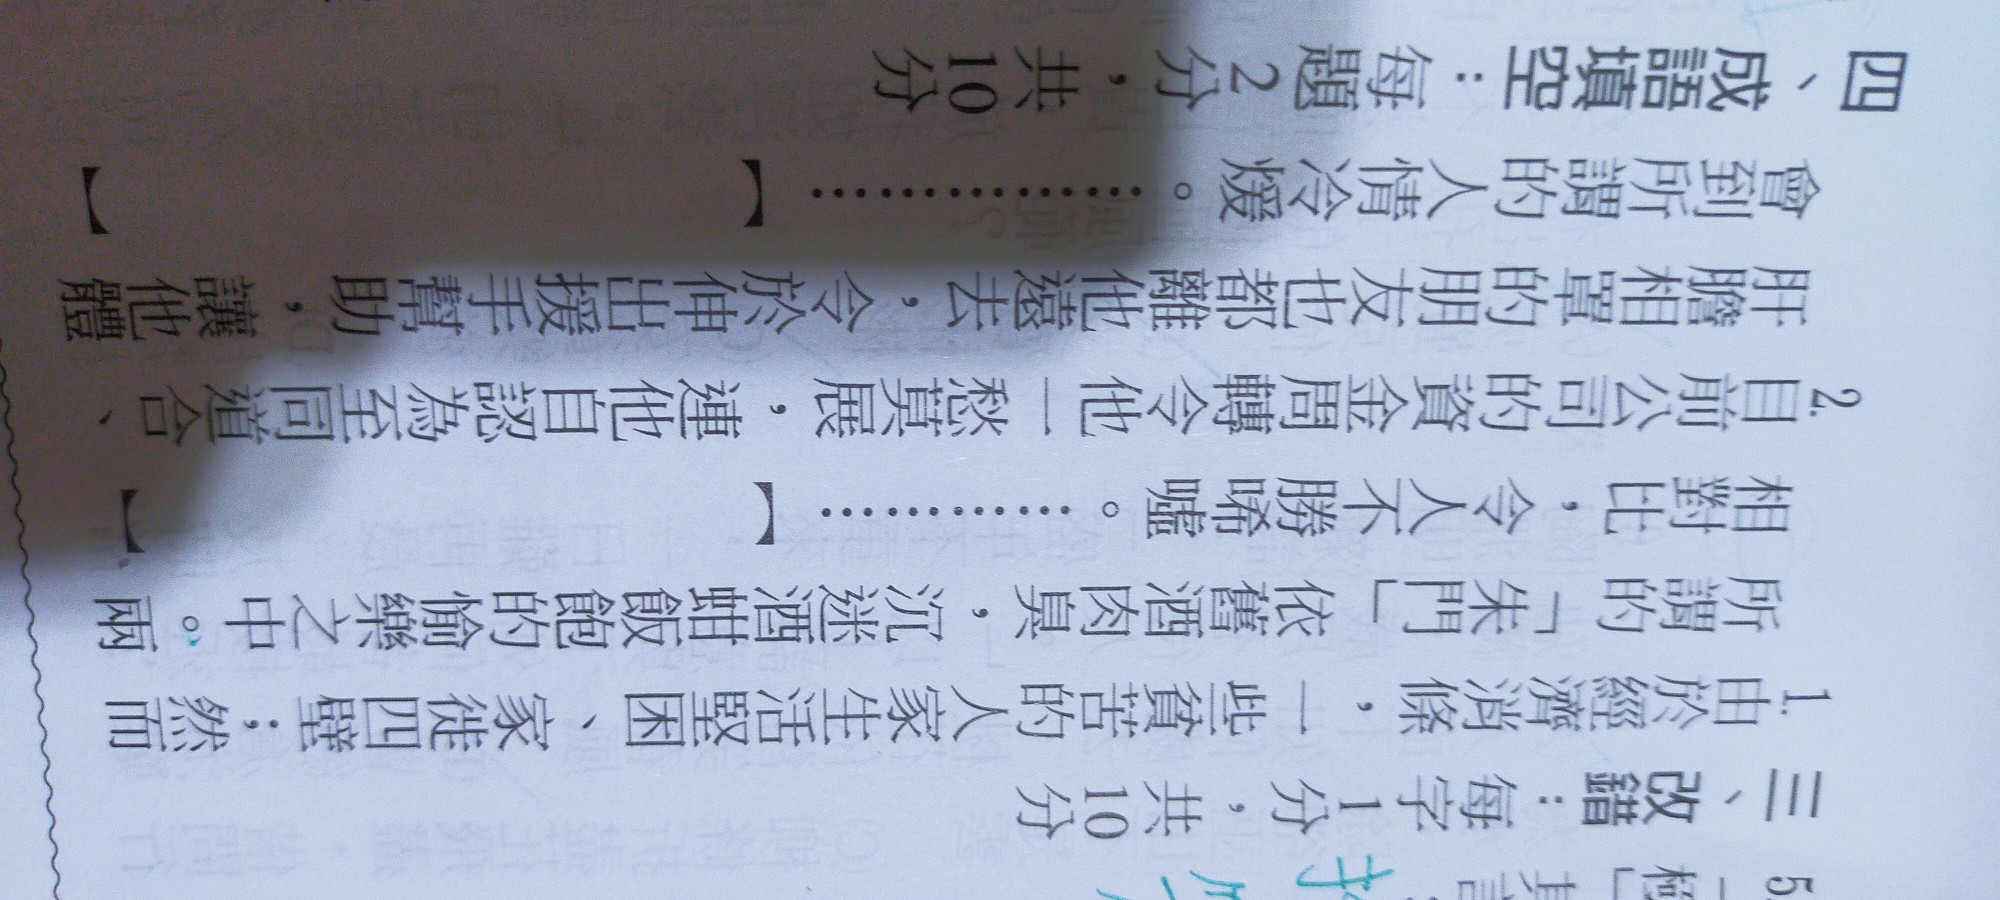 三、改錯：每字1分，共10分
1.由於經濟消條，一些貧苦的人家生活堅困、家徒四壁；然而
所謂的「朱門」依舊酒肉臭，沉迷酒蚶飯飽的愉樂之中。兩
相對比，令人不勝唏噓。…………【 】
2.目前公司的資金周轉令他一愁莫展，連他自認為至同道合、
肝膽相罩的朋友也都離他遠去，令於伸出援手幫助，讓他體
會到所謂的人情冷煖。……………【 】
四、成語填空：每題2分，共10分